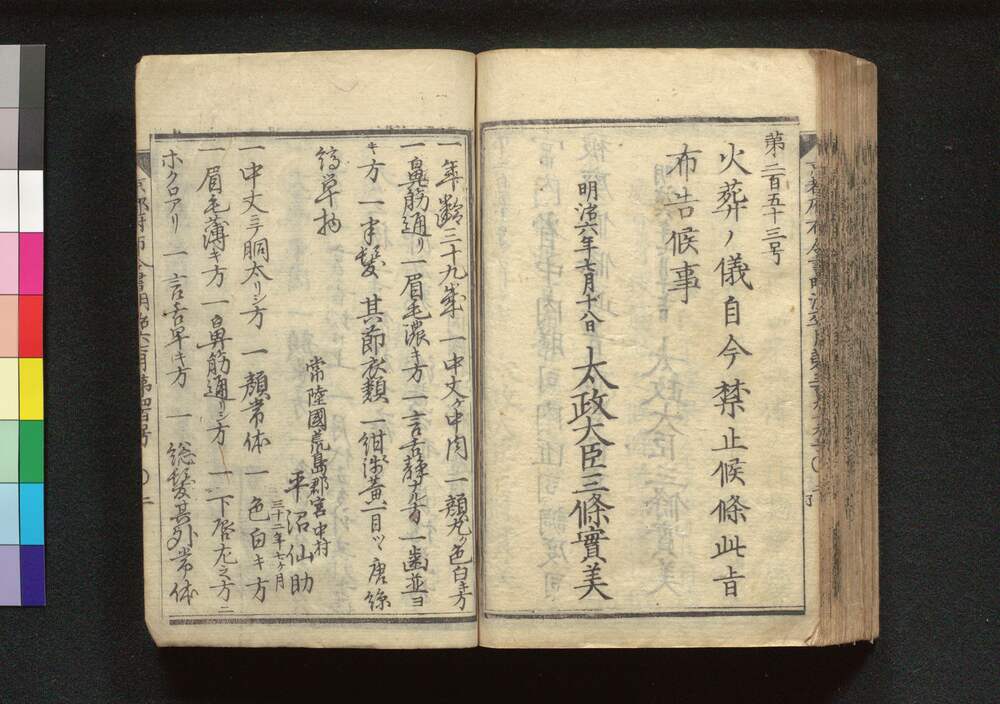 第二百五十三号
火葬ノ儀自今禁止候條此旨
布告候事
明治六年七月十八日
太政大臣三條實美
一年齢三十九歳 一中丈ケ中肉 一顔丸ク色白キ方
一鼻筋通リ 一眉毛濃キ方 一言舌静ナル方 一歯並ヨ
キ方 一半髪 其節衣類 一紺浅黄一目ツ唐絲
縞単物
常陸國荒島郡宮中村
平沼仙助
三十二年七ケ月
一中丈ニテ胴太リシ方 一顔常体 一色白キ方
一眉毛薄キ方 一鼻筋通リシ方 一下唇左之方ニ
ホクロアリ 一言舌早キ方 一総髪其外常体